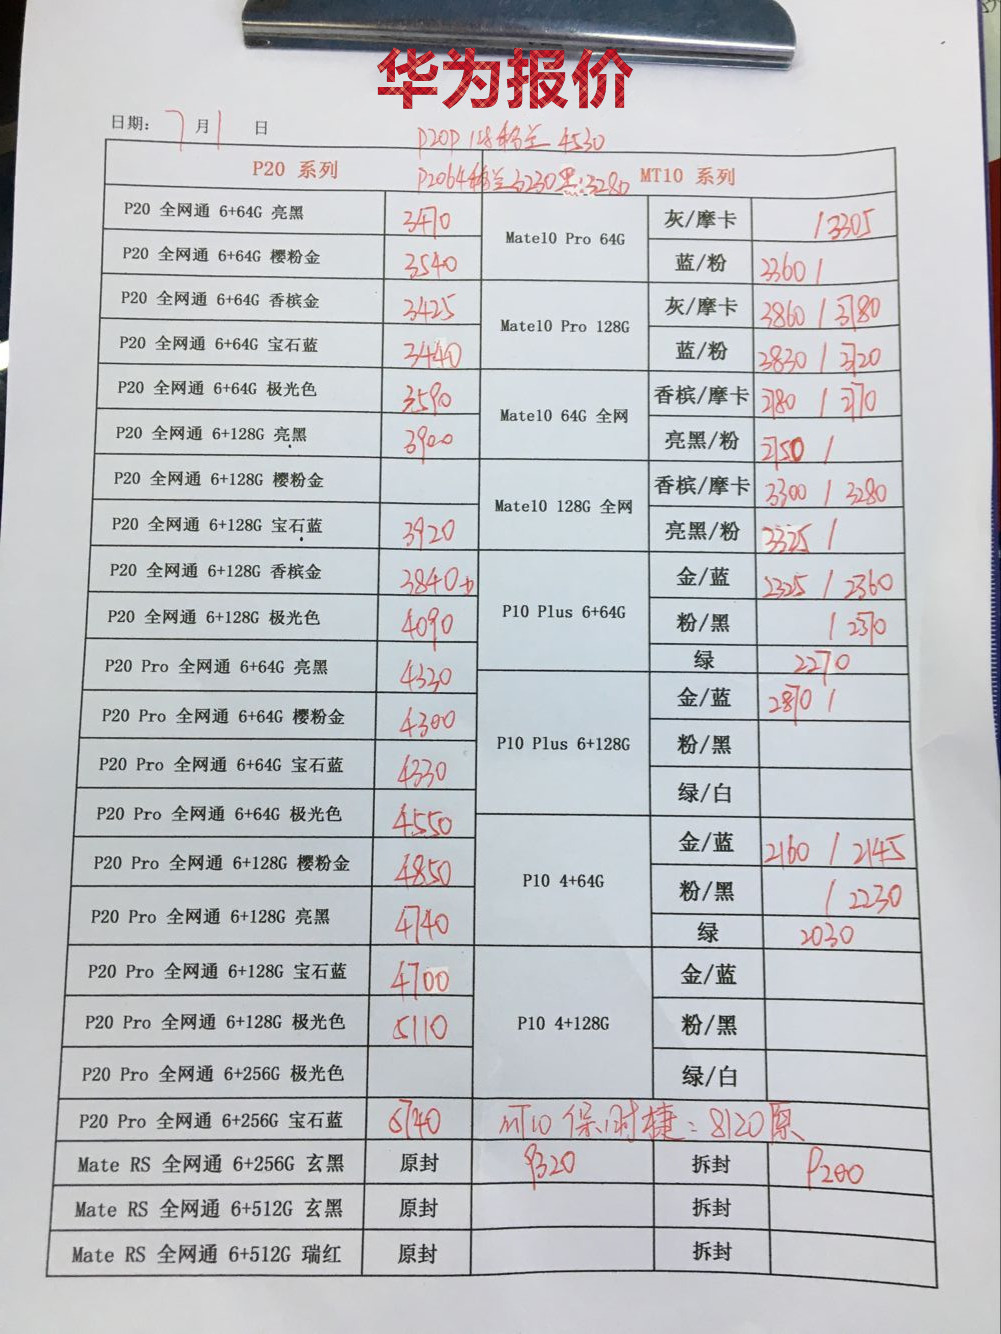 华为报价
日期: 7月1 日
P20P 128移兰 4530
P20 系列 P2064移兰3230黑:3280 MT10 系列
P20 全网通 6+64G 亮黑 3470 Mate10 Pro 64G 灰/摩卡 / 3305
P20 全网通 6+64G 樱粉金 3540 蓝/粉 3360 /
P20 全网通 6+64G 香槟金 3425 Mate10 Pro 128G 灰/摩卡 3860 / 3780
P20 全网通 6+64G 宝石蓝 3440 蓝/粉 3830 / 3720
P20 全网通 6+64G 极光色 3590 Mate10 64G 全网 香槟/摩卡 2780 / 2770
P20 全网通 6+128G 亮黑 3900 亮黑/粉 2750 /
P20 全网通 6+128G 樱粉金 Mate10 128G 全网 香槟/摩卡 3300 / 3280
P20 全网通 6+128G 宝石蓝 3920 亮黑/粉 3325 /
P20 全网通 6+128G 香槟金 3840 P10 Plus 6+64G 金/蓝 2325 / 2360
P20 全网通 6+128G 极光色 4090 粉/黑 / 2370
绿 2270
P20 Pro 全网通 6+64G 亮黑 4330 P10 Plus 6+128G 金/蓝 2870 /
P20 Pro 全网通 6+64G 樱粉金 4300 粉/黑
P20 Pro 全网通 6+64G 宝石蓝 4330 绿/白
P20 Pro 全网通 6+64G 极光色 4550 P10 4+64G 金/蓝 2160 / 2145
P20 Pro 全网通 6+128G 樱粉金 4850 粉/黑 / 2230
P20 Pro 全网通 6+128G 亮黑 4740 绿 2030
P20 Pro 全网通 6+128G 宝石蓝 4700 P10 4+128G 金/蓝
P20 Pro 全网通 6+128G 极光色 5110 粉/黑
P20 Pro 全网通 6+256G 极光色 绿/白
P20 Pro 全网通 6+256G 宝石蓝 5740 MT10 保时捷: 8120原
Mate RS 全网通 6+256G 玄黑 原封 9320 拆封 9200
Mate RS 全网通 6+512G 玄黑 原封 拆封
Mate RS 全网通 6+512G 瑞红 原封 拆封